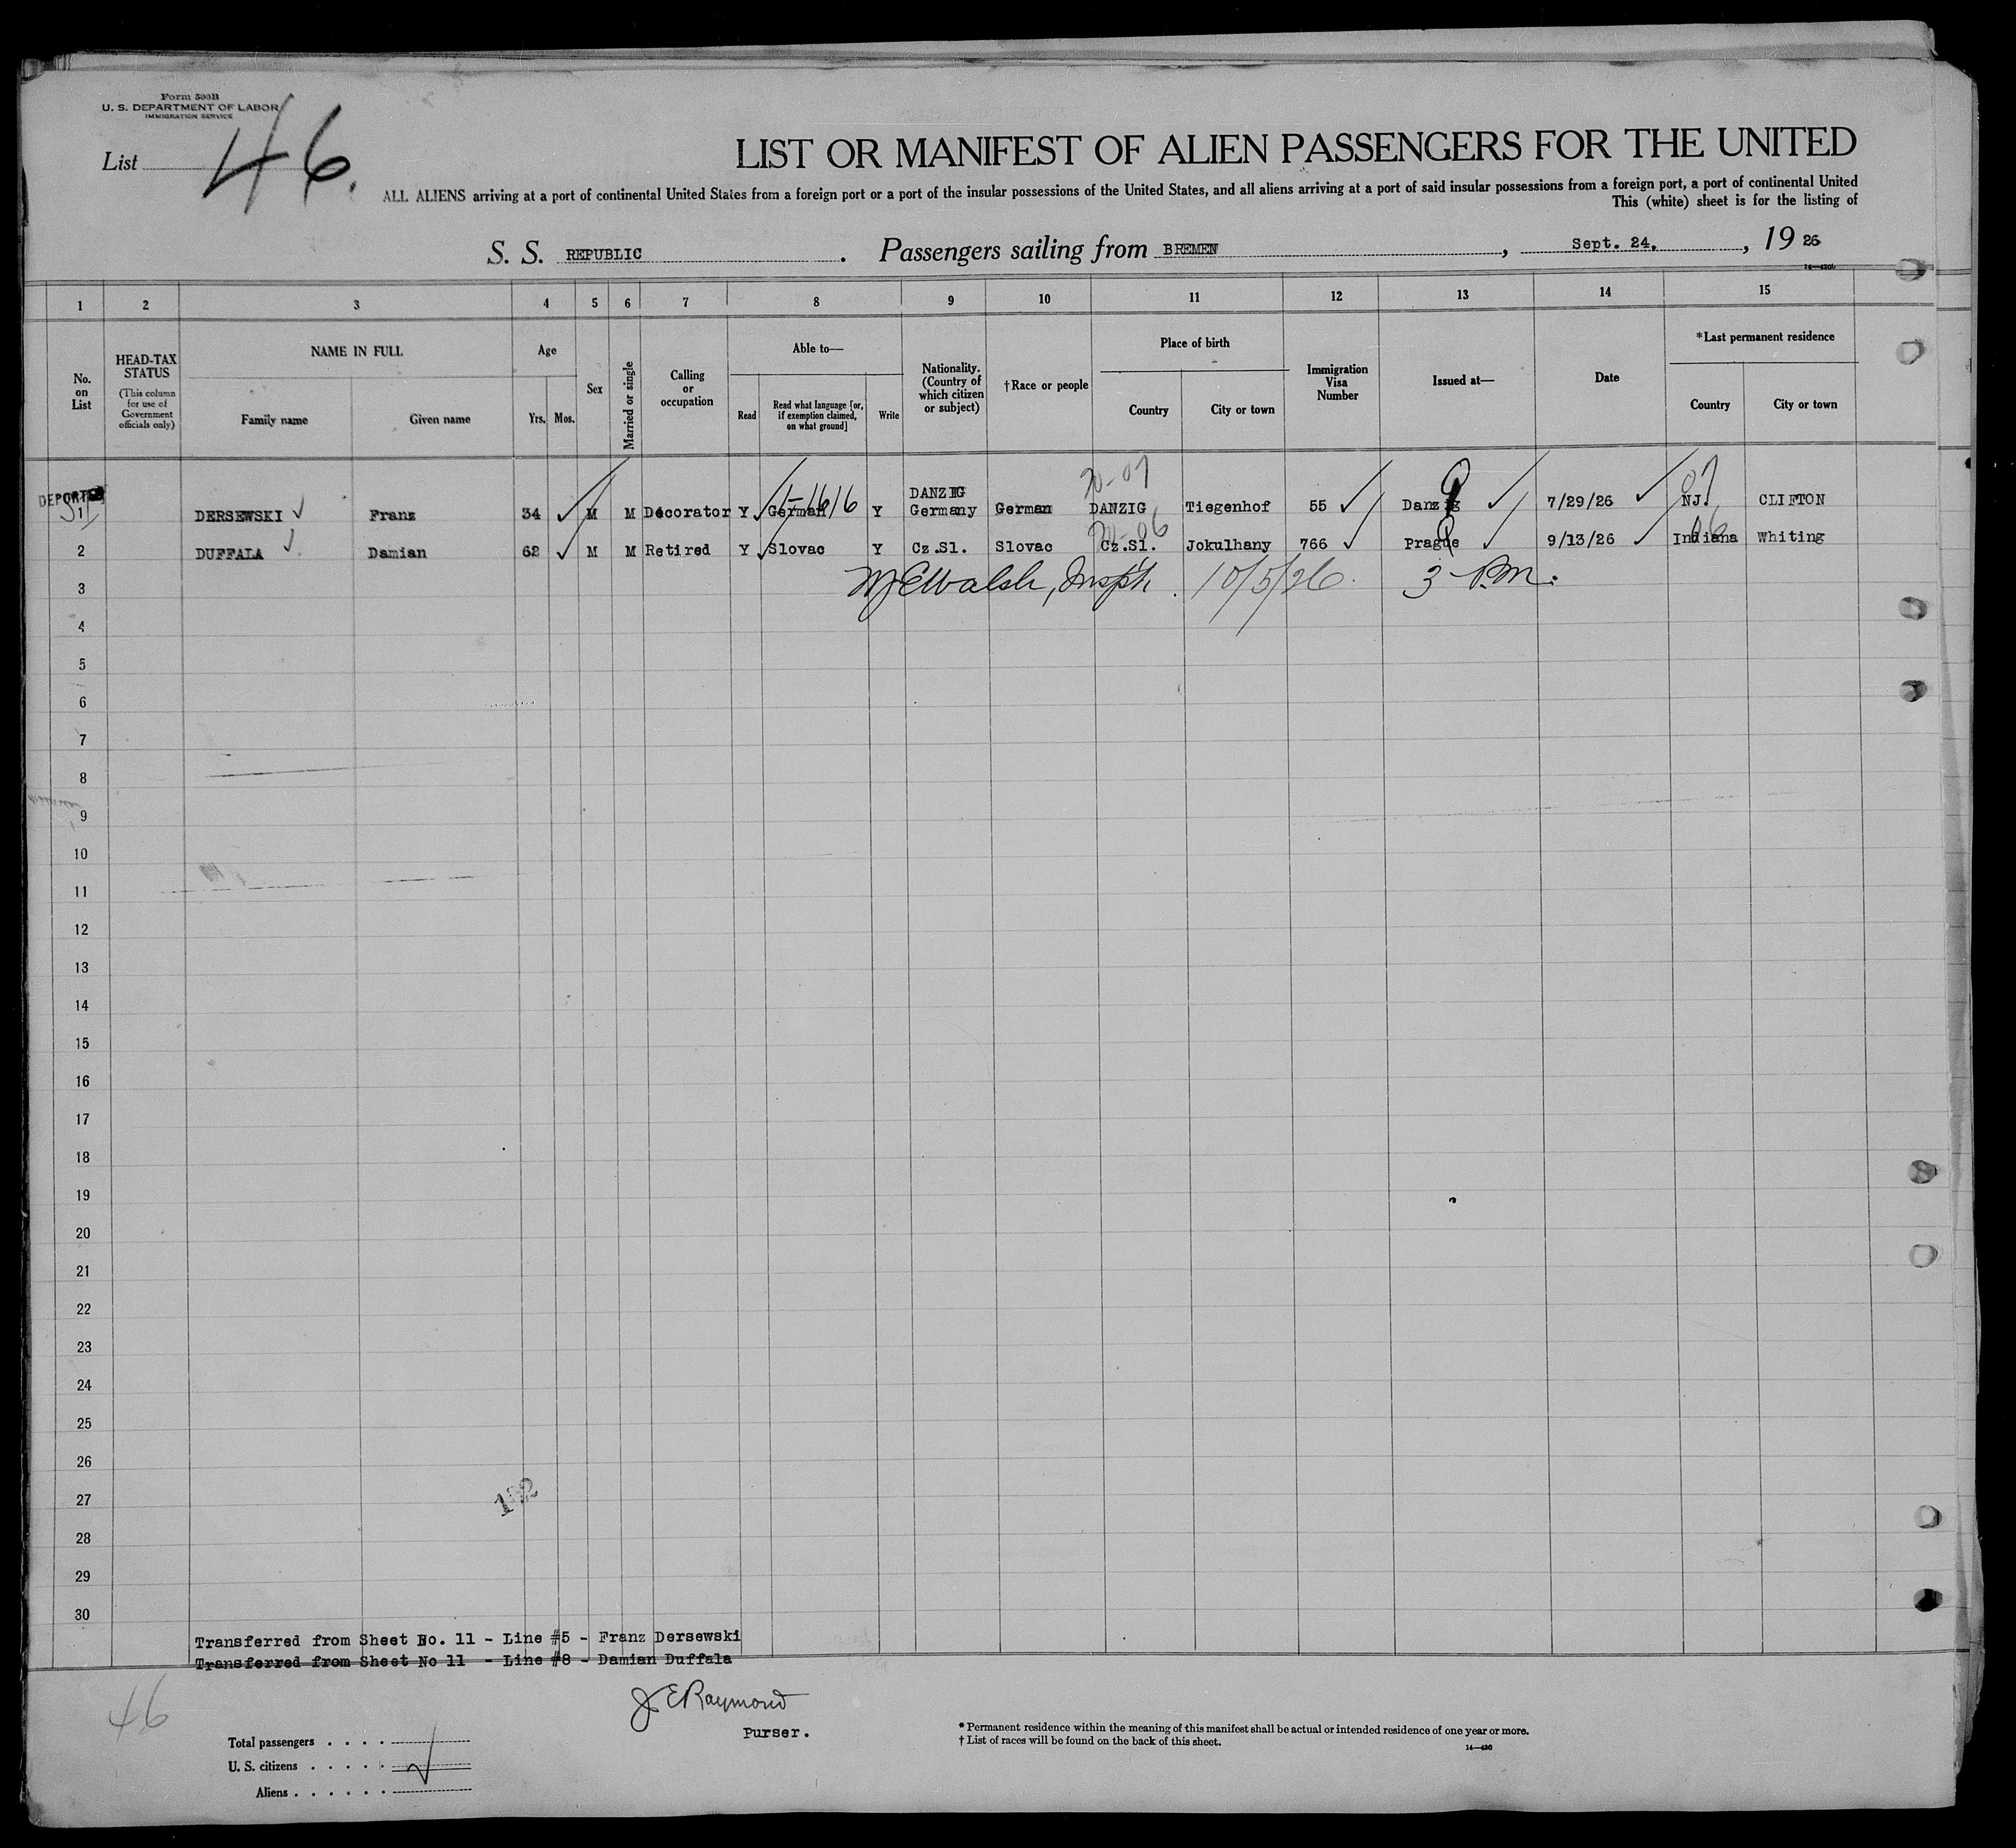 Form 500B
U. S. DEPARTMENT OF LABOR
IMMIGRATION SERVICE
List 46.
LIST OR MANIFEST OF ALIEN PASSENGERS FOR THE UNITED
ALL ALIENS arriving at a port of continental United States from a foreign port or a port of the insular possessions of the United States, and all aliens arriving at a port of said insular possessions from a foreign port, a port of continental United
This (white) sheet is for the listing of
S. S. REPUBLIC . Passengers sailing from BREMEN , Sept. 24, , 19 26
1 2 3 4 5 6 7 8 9 10 11 12 13 14 15
No. on List
HEAD-TAX STATUS
(This column for use of Government officials only)
NAME IN FULL
Family name Given name
Age
Yrs. Mos.
Sex
Married or single
Calling or occupation
Able to—
Read
Read what language [or, if exemption claimed, on what ground]
Write
Nationality. (Country of which citizen or subject)
†Race or people
Place of birth
Country City or town
Immigration Visa Number
Issued at—
Date
*Last permanent residence
Country City or town
DEPORTED DANZIG 70-07 07
1 DERSEWSKI Franz 34 M M Decorator Y German Y Germany German DANZIG Tiegenhof 55 Danzig 7/29/26 NJ. CLIFTON
06
2 DUFFALA Damian 62 M M Retired Y Slovac Y Cz.Sl. Slovac Cz.Sl. Jokulhany 766 Prague 9/13/26 Indiana Whiting
3 M E Walsh, Insp't. 10/5/26. 3 P.m.
4
5
6
7
8
9
10
11
12
13
14
15
16
17
18
19
20
21
22
23
24
25
26
27
28
29
30
Transferred from Sheet No. 11 - Line #5 - Franz Dersewski
Transferred from Sheet No 11 - Line #8 - Damian Duffala
46
J E Raymond
Purser.
Total passengers
U. S. citizens
Aliens
* Permanent residence within the meaning of this manifest shall be actual or intended residence of one year or more.
† List of races will be found on the back of this sheet.